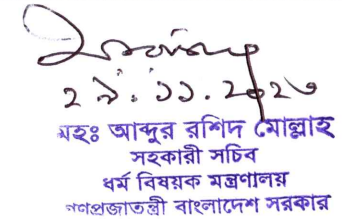 ২৯.১১.২০২৩
মহঃ আব্দুর রশিদ মোল্লাহ
সহকারী সচিব
ধর্ম বিষয়ক মন্ত্রণালয়
গণপ্রজাতন্ত্রী বাংলাদেশ সরকার